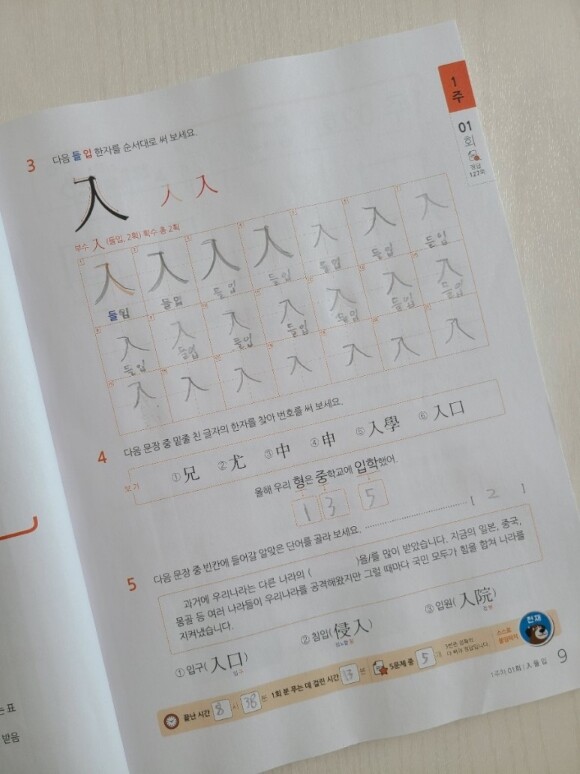 1
주
01
회
정답
127쪽
3 다음 들 입 한자를 순서대로 써 보세요.
入 入 入
부수 入 (들입, 2획) 획수 총 2획
入 入 入 入 入 入 入
들입 들입 들입 들입 들입 들입 들입
入 入 入 入 入 入 入
들입 들입 들입 들입 들입 들입 들입
入 入 入 入 入 入 入
4 다음 문장 중 밑줄 친 글자의 한자를 찾아 번호를 써 보세요.
보기 ① 兄 ② 尤 ③ 中 ④ 申 ⑤ 入學 ⑥ 入口
올해 우리 형은 중학교에 입학했어.
1 3 5
5 다음 문장 중 빈칸에 들어갈 알맞은 단어를 골라 보세요. 1 2 1
과거에 우리나라는 다른 나라의 ( )을/를 많이 받았습니다. 지금의 일본, 중국,
몽골 등 여러 나라들이 우리나라를 공격해왔지만 그럴 때마다 국민 모두가 힘을 합쳐 나라를
지켜냈습니다.
① 입구(入口) ② 침입(侵入) ③ 입원(入院)
끝난 시간 8 시 38 분 1회 분 푸는 데 걸린 시간 13 분 5문제 중 5 개
9